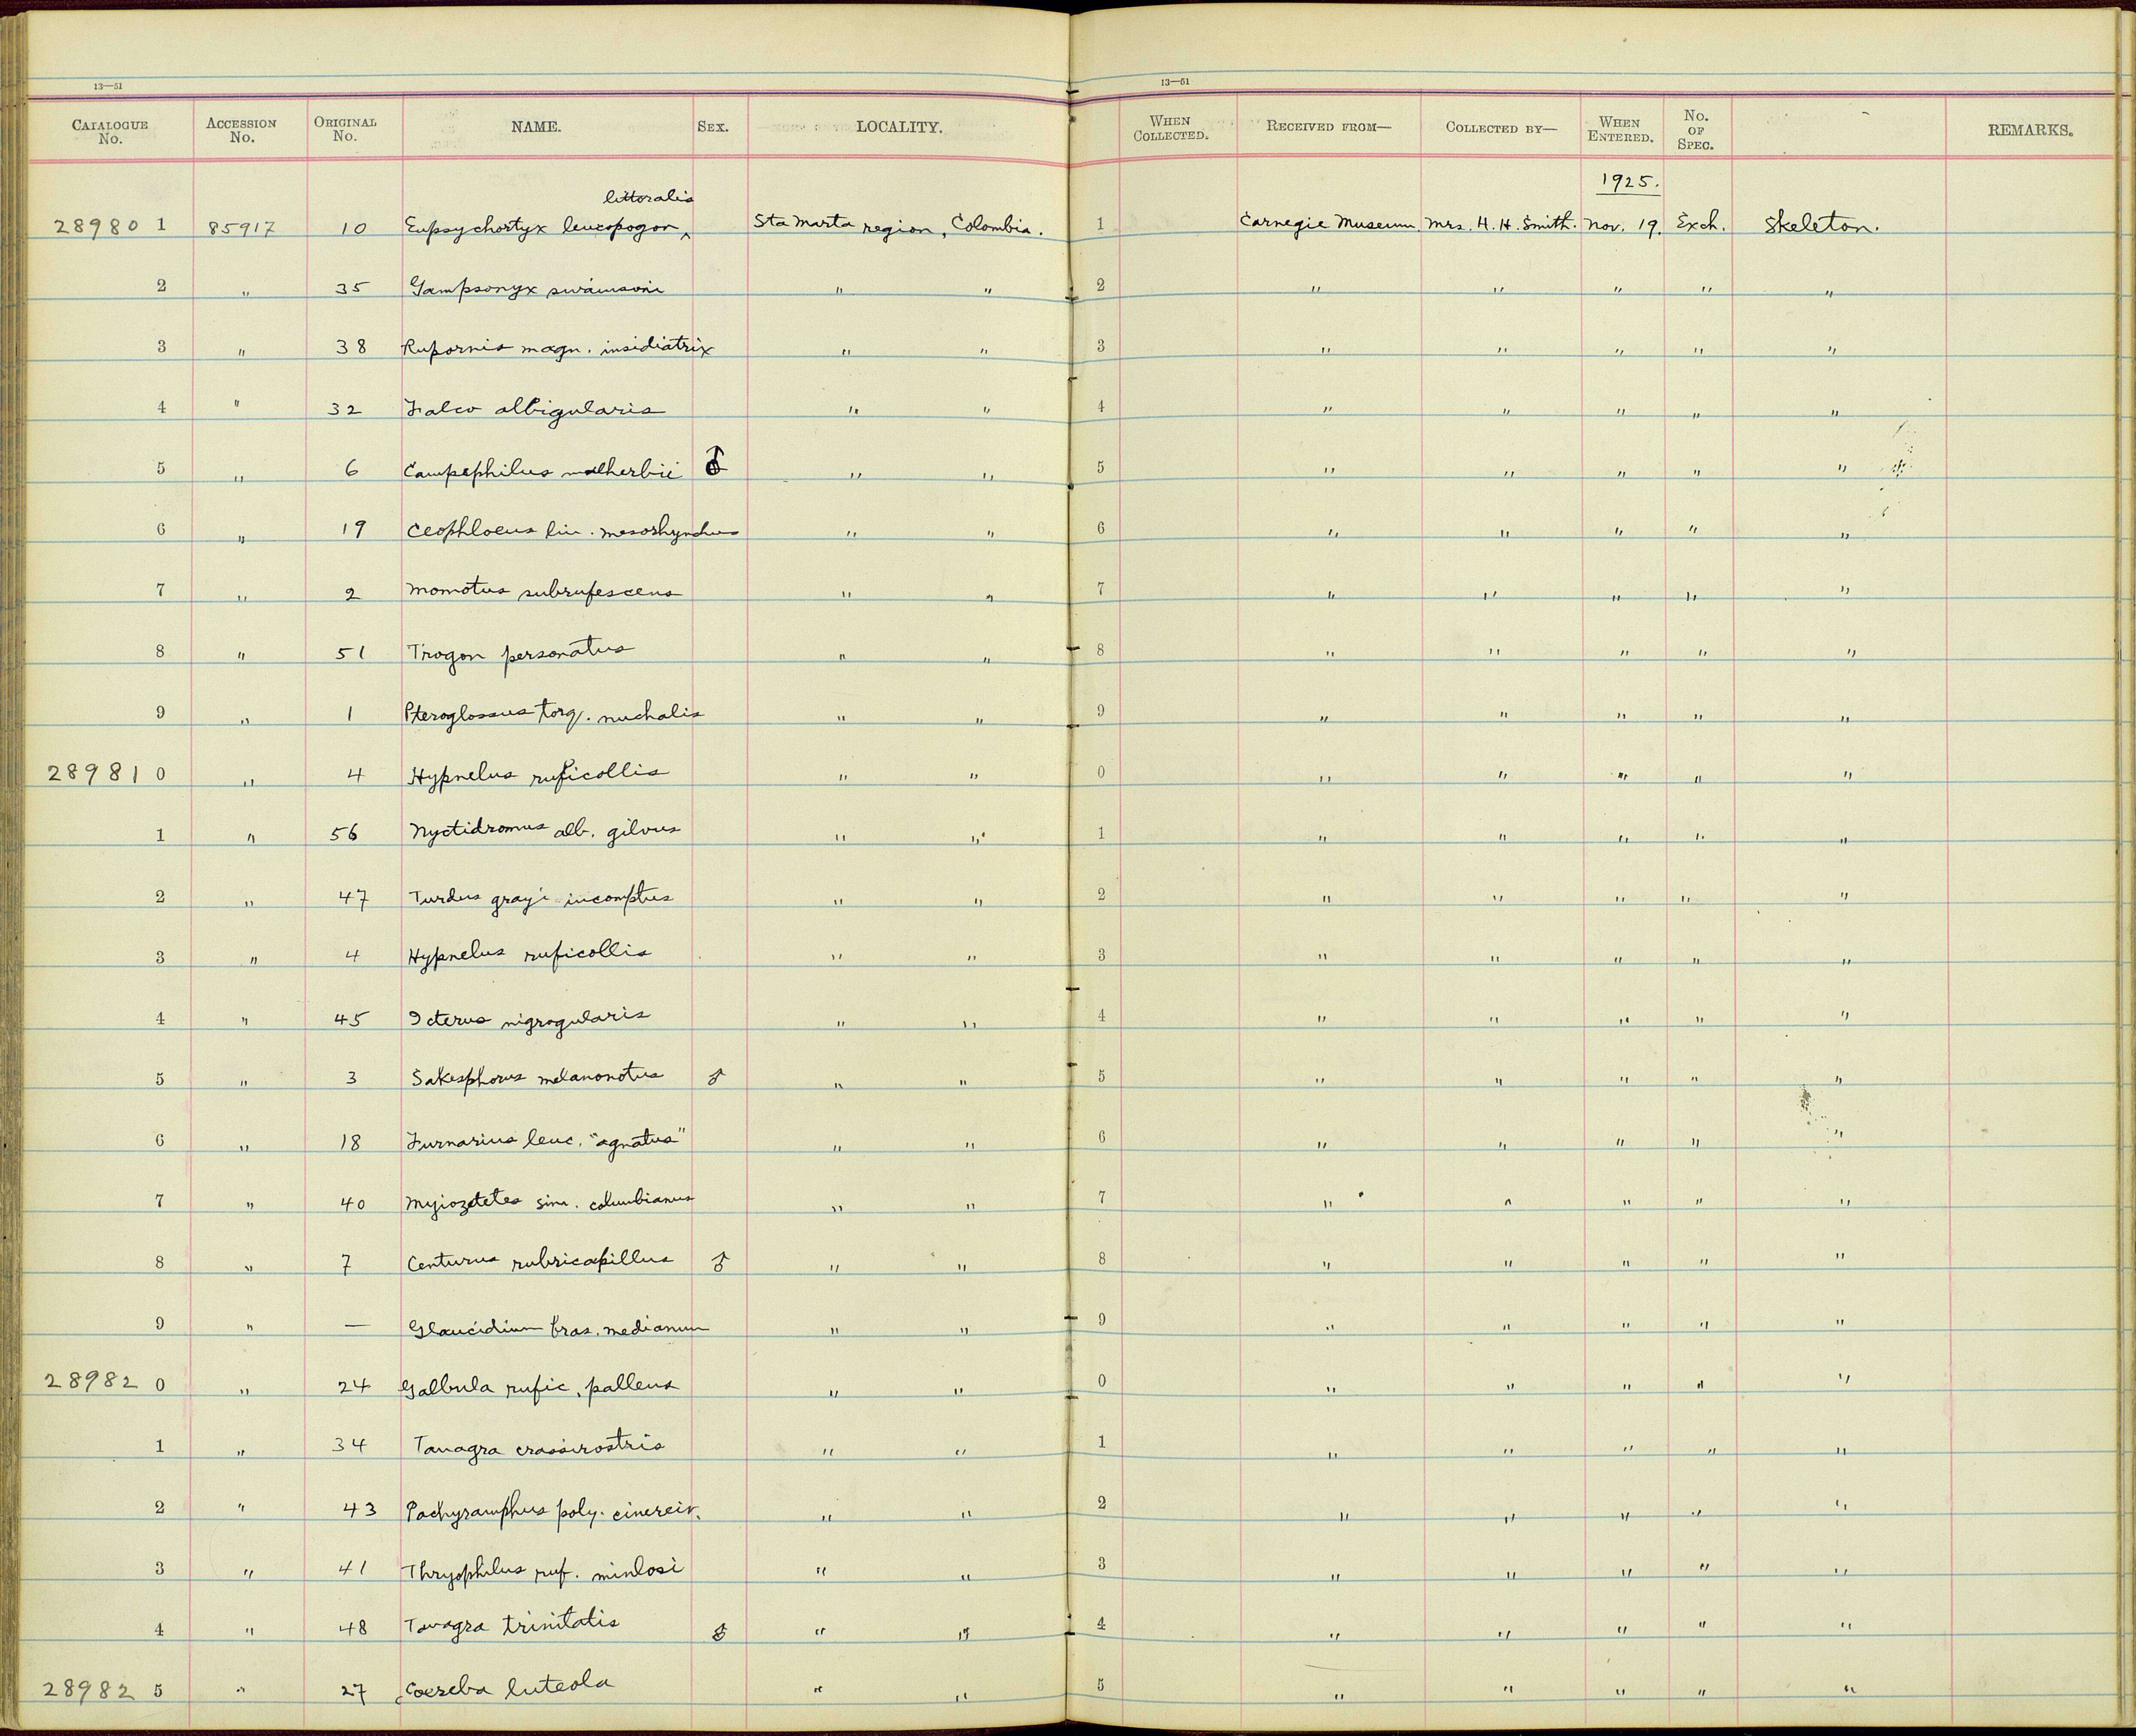 13—51
13—51
CATALOGUE No. ACCESSION No. ORIGINAL No. NAME. SEX. LOCALITY. WHEN COLLECTED. RECEIVED FROM— COLLECTED BY— WHEN ENTERED. No. OF SPEC. REMARKS.
1925.
littoralis
28980 1 85917 10 Eupsychortyx leucopogon ‸ Sta Marta region, Colombia. 1 Carnegie Museum Mrs. H. H. Smith. Nov. 19. Exch. Skeleton.
2 " 35 Gampsonyx swainsoni " " 2 " " " " "
3 " 38 Rupornis magn. insidiatrix " " 3 " " " " "
4 " 32 Falco albigularis " " 4 " " " " "
5 " 6 Campephilus malherbii ♂ " " 5 " " " " "
6 " 19 Ceophloeus lin. mesorhynchus " " 6 " " " " "
7 " 2 Momotus subrufescens " " 7 " " " " "
8 " 51 Trogon personatus " " 8 " " " " "
9 " 1 Pteroglossus torq. nuchalis " " 9 " " " " "
28981 0 " 4 Hypnelus ruficollis " " 0 " " " " "
1 " 56 Nyctidromus alb. gilvus " " 1 " " " " "
2 " 47 Turdus grayi incomptus " " 2 " " " " "
3 " 4 Hypnelus ruficollis " " 3 " " " " "
4 " 45 Icterus nigrogularis " " 4 " " " " "
5 " 3 Sakesphorus melanonotus ♂ " " 5 " " " " "
6 " 18 Furnarius leuc. "agnatus" " " 6 " " " " "
7 " 40 Myiozetetes sim. columbianus " " 7 " " " " "
8 " 7 Centurus rubricapillus ♂ " " 8 " " " " "
9 " — Glaucidium bras. medianum " " 9 " " " " "
28982 0 " 24 Galbula rufic. pallens " " 0 " " " " "
1 " 34 Tanagra crassirostris " " 1 " " " " "
2 " 43 Pachyramphus poly. cinereiv. " " 2 " " " " "
3 " 41 Thryophilus ruf. minlosi " " 3 " " " " "
4 " 48 Tanagra trinitatis ♂ " " 4 " " " " "
28982 5 " 27 Coereba luteola " " 5 " " " " "